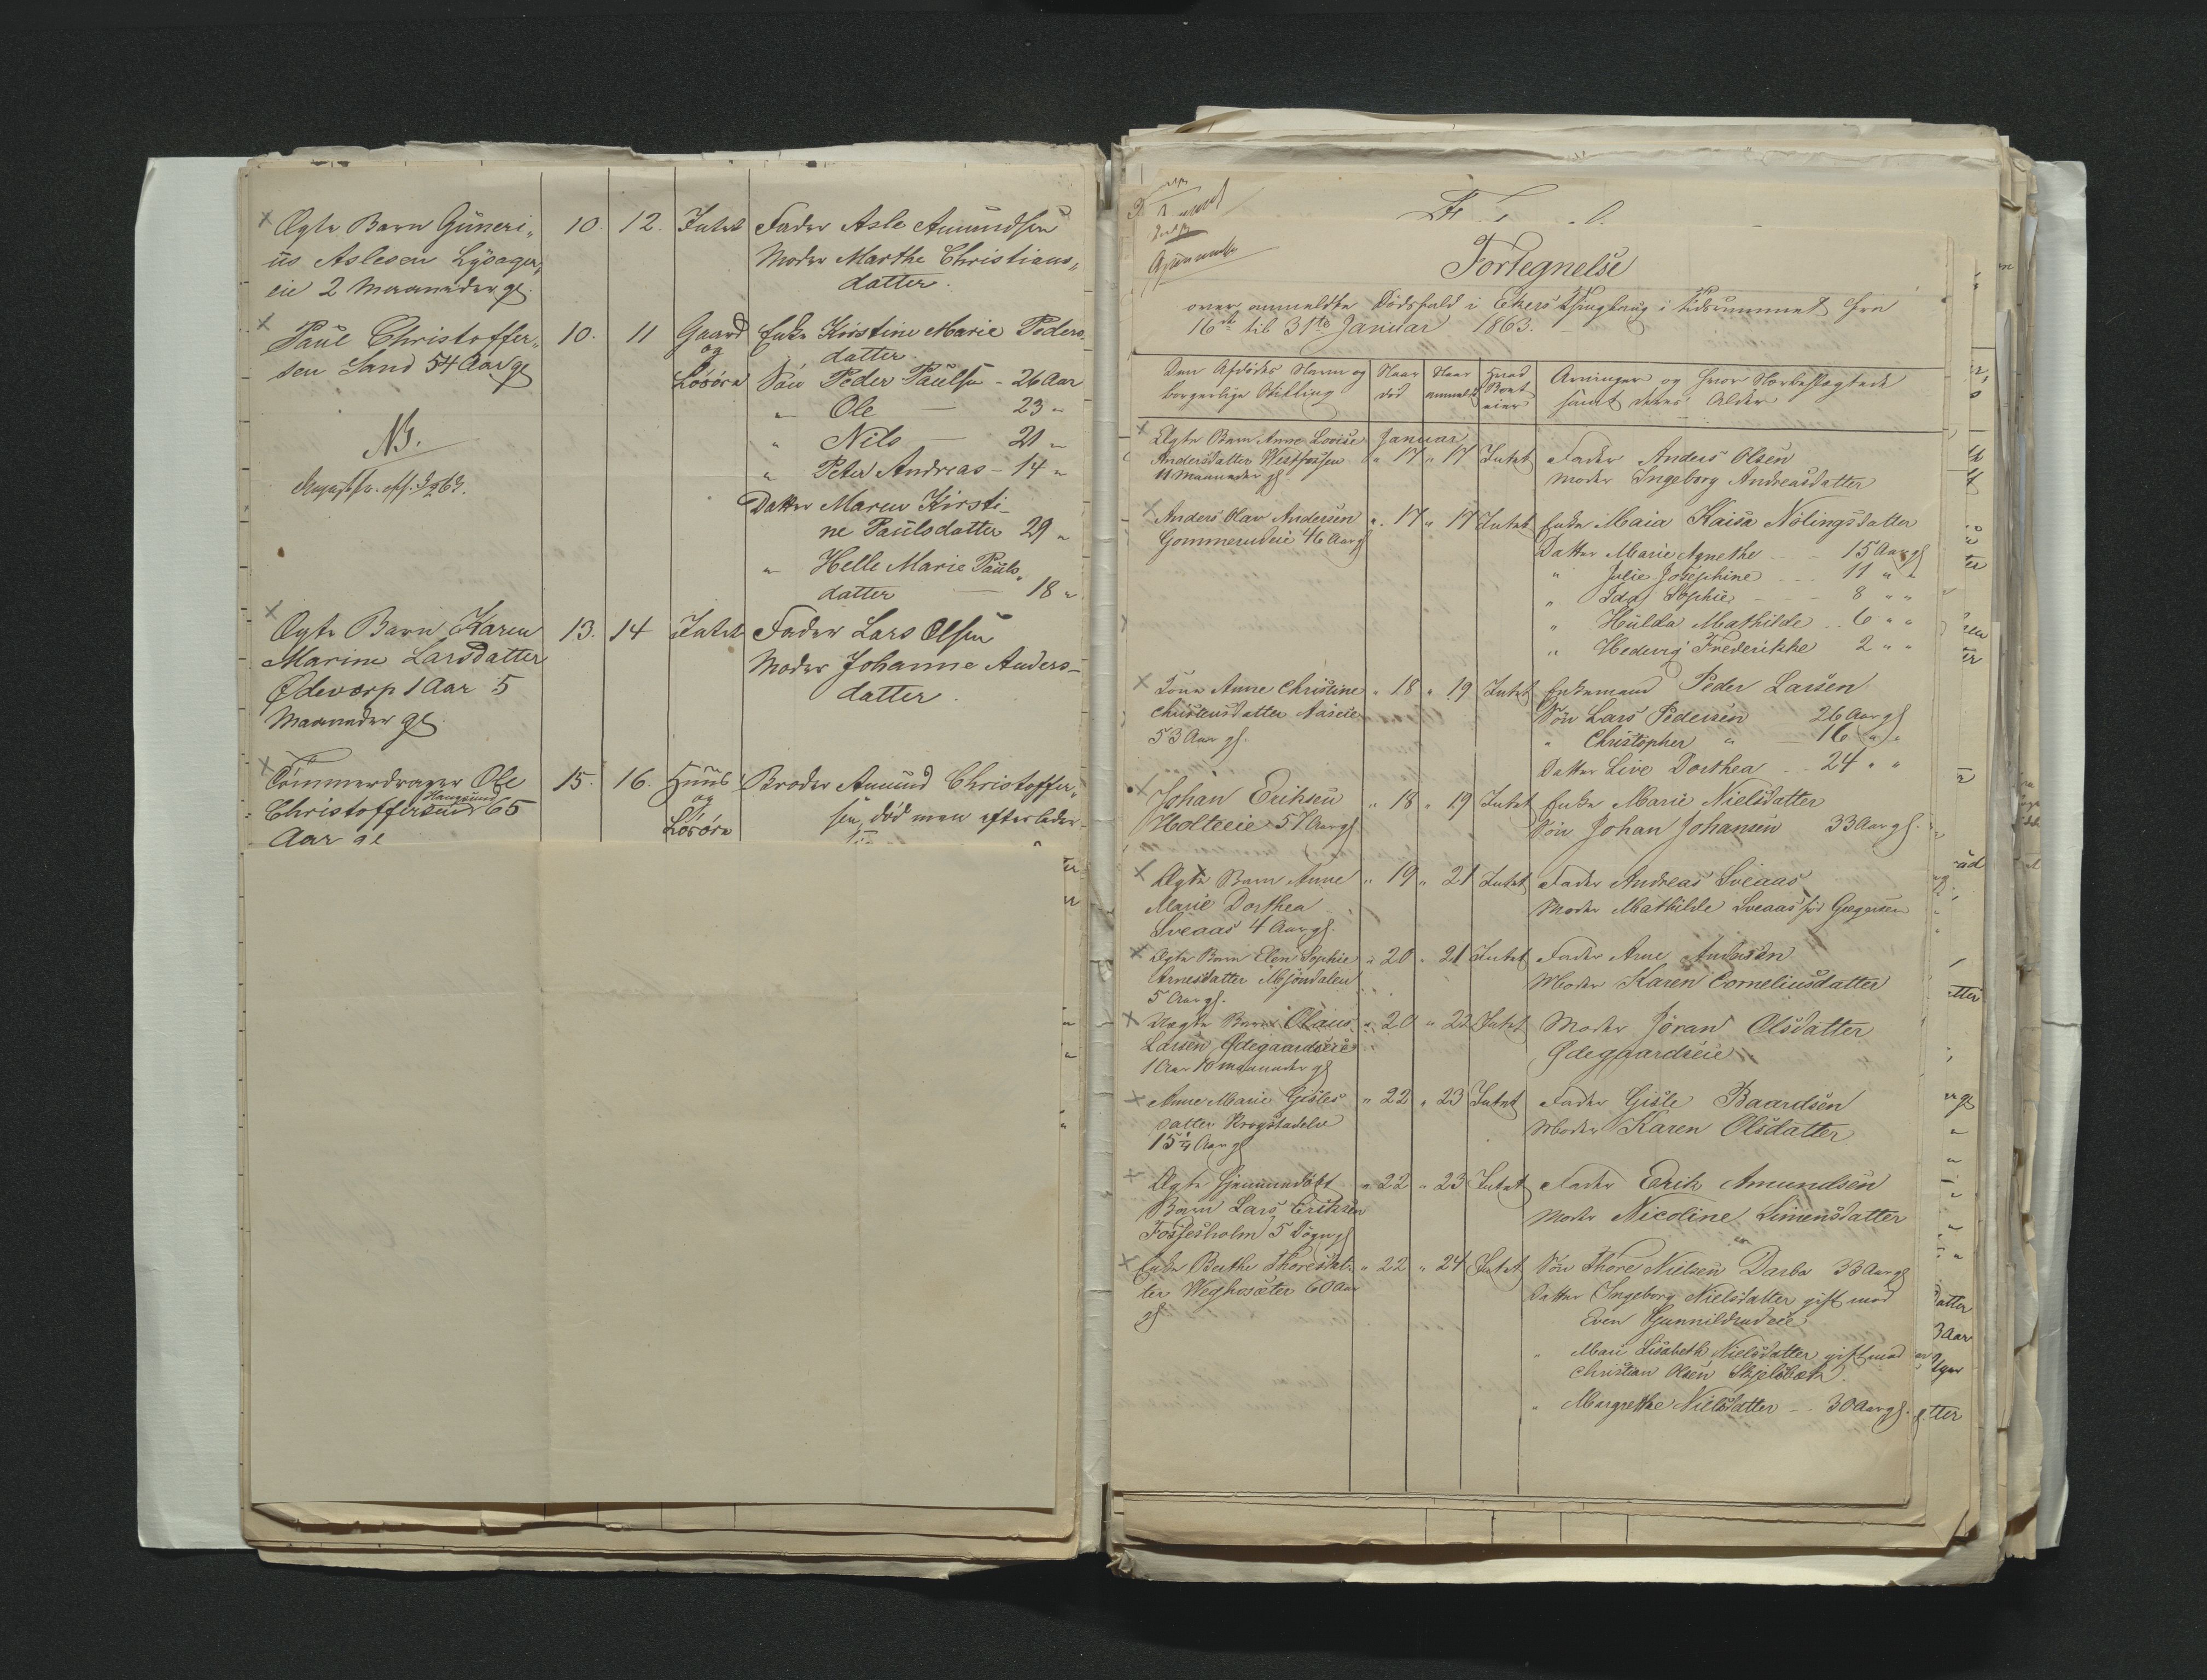 Ægte Barn Guneri„ 10. 12. Intet Fader Asle Amundsen
us Aslesen Lysager„ Moder Marthe Christians„
eie 2 Maaneder gl. datter.
Paul Christoffer„ 10. 11 Gaard Enke Kirstine Marie Peders„
sen Sand 54 Aar gl og datter.
Løsøre Søn Peder Paulsen - 26 Aar
„ Ole — 23 „
NB. „ Nils — 21 „
„ Peter Andreas - 14 „
Datter Maren Kirsti-
ne Paulsdatter 29 „
„ Helle Marie Pauls„
datter — 18 „
Ægte Barn Karen 13. 14 Intet Fader Lars Olsen
Marine Larsdatter Moder Johanne Anders-
Ødeværp 1 Aar 5 datter.
Maaneder gl.
Tømmerdrager Ole 15. 16. Huus Broder Amund Christoffer„
Haugsund og
Christoffersen 65 Løsøre sen, død men efterlader
Aar gl
Fortegnelse
over anmeldte Dødsfald i Ekers Thinglaug i Tidsrummet fra
16de til 31te Januar 1863.
Den Afdødes Navn og Naar Naar Hvad Arvinger og hvor Nærbeslægtede
borgerlige Stilling død anmeldt Boet eier samt deres Alder
Ægte Barn Anne Lovise Januar
Andersdatter Westfossen „ 17 „ 17 Intet Fader Anders Olsen
11 Maaneder gl. Moder Ingeborg Andreasdatter
Anders Olav Andersen „ 17 „ 17 Intet Enke Maia Kaisa Nolingsdatter
Gommerudeie 46 Aar gl Datter Marie Agnethe - - 15 Aar gl
„ Julie Josephine - - - 11 „ „
„ Ida Sophie - - - 8 „ „
„ Hulda Mathilde - - 6 „ „
„ Hedevig Frederikke 2 „ „
Kone Anne Christine „ 18 „ 19 Intet Enkemand Peder Larsen
Christensdatter Aaseie Søn Lars Pedersen 26 Aar gl
53 Aar gl. „ Christopher „ — 16 „ „
Datter Live Dorthea - - 24 „ „
Johan Eriksen „ 18 „ 19 Intet Enke Marie Nielsdatter
Holteeie 57 Aar gl. Søn Johan Johansen 33 Aar gl.
Ægte Barn Anne „ 19 „ 21 Intet Fader Andreas Sveaas
Marie Dorthea Moder Mathilde Sveaas fød Gregersen
Sveaas 4 Aar gl.
Ægte Barn Elen Sophie „ 20 „ 21 Intet Fader Arne Andersen
Arnesdatter Mjøndalen Moder Karen Corneliusdatter
5 Aar gl.
Uægte Barn Olaus „ 20 „ 22 Intet Moder Jøran Olsdatter
Larsen Ødegaardseie Ødegaardseie
1 Aar 10 Maaneder gl
Anne Marie Gisles „ 22 „ 23 Intet Fader Gisle Baardsen
datter Krogstadelv Moder Karen Olsdatter
15 ¼ Aar gl
Ægte hjemmedøbt „ 22 „ 23 Intet Fader Erik Amundsen
Barn Lars Eriksen Moder Nicoline Simensdatter
Fossesholm 5 Døgn gl
Enke Berthe Thoresdat- „ 22 „ 24 Intet Søn Thore Nielsen Darbo 33 Aar gl
ter Weghosæter 60 Aar Datter Ingeborg Nielsdatter gift med
gl Even Gunnildrudeie
„ Mari Lisabeth Nielsdatter gift med
Christian Olsen Skjelbæk
„ Margrethe Nielsdatter - - 30 Aar gl.